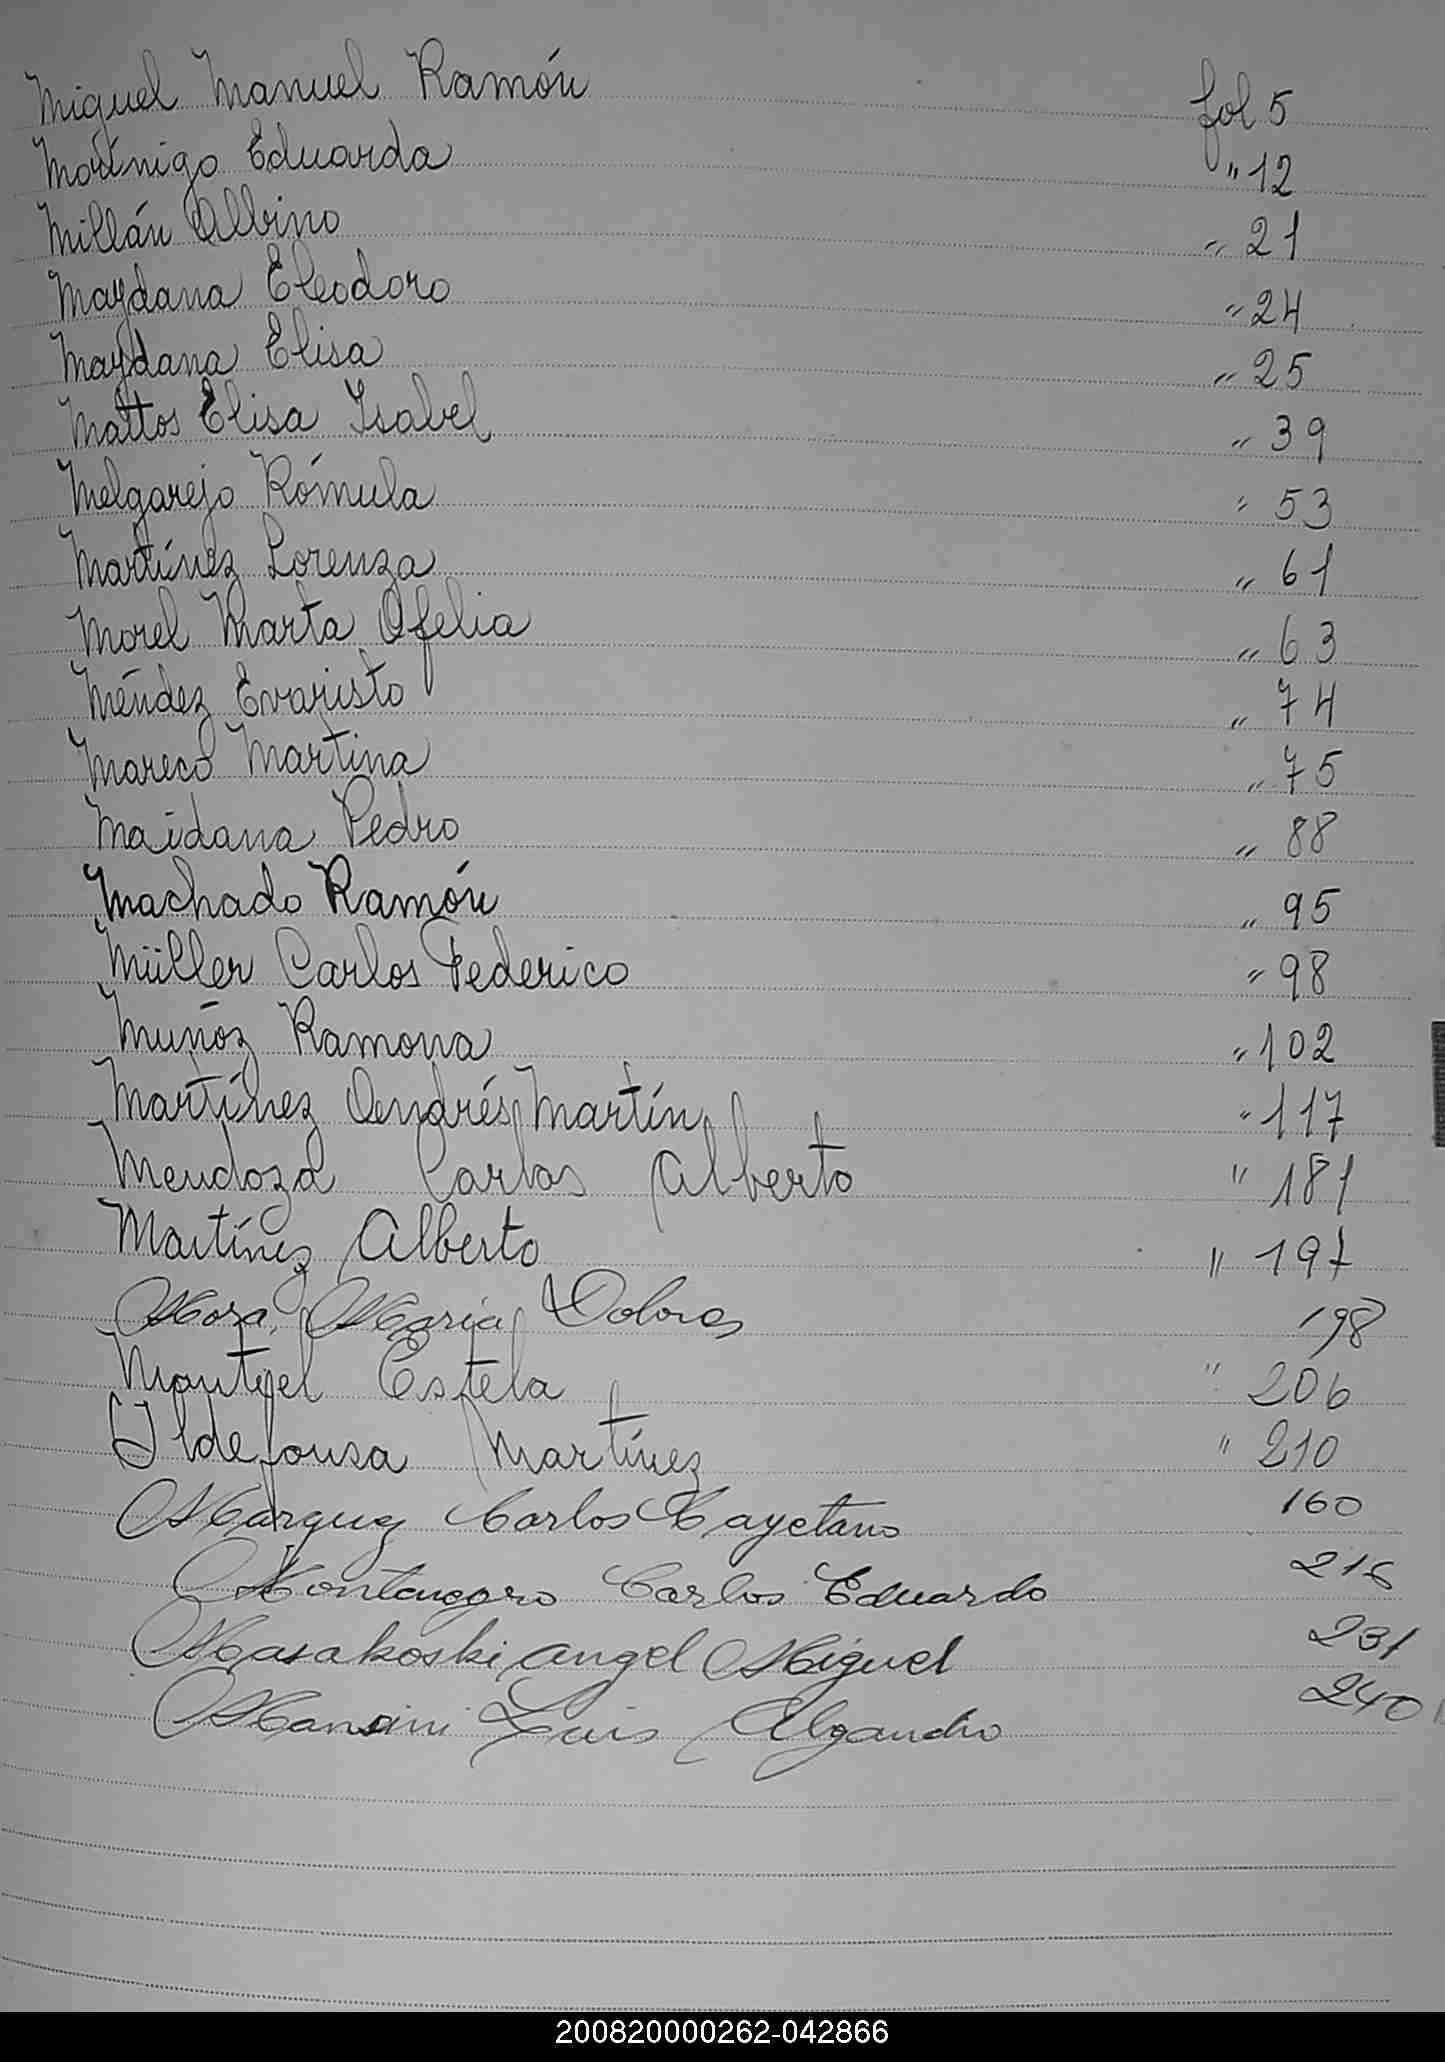 Miguel Manuel Ramón fol 5
Morínigo Eduarda " 12
Millán Albino " 21
Maydana Eleodoro " 24
Maydana Elisa " 25
Mattos Elisa Isabel " 39
Melgarejo Rómula " 53
Martínez Lorenza " 61
Morel Marta Ofelia " 63
Méndez Evaristo " 74
Mareco Martina " 75
Maidana Pedro " 88
Machado Ramón " 95
Müller Carlos Federico " 98
Muñoz Ramona " 102
Martínez Andrés Martín " 117
Mendoza Carlos Alberto " 181
Martínez Alberto " 197
Mora, María Dolores 198
Montiel Estela " 206
Ildefonsa Martínez " 210
Marquez Carlos Cayetano 160
Montenegro Carlos Eduardo
Masakoski Angel Miguel 231
Mansini Luis Alejandro 240
200820000262-042866